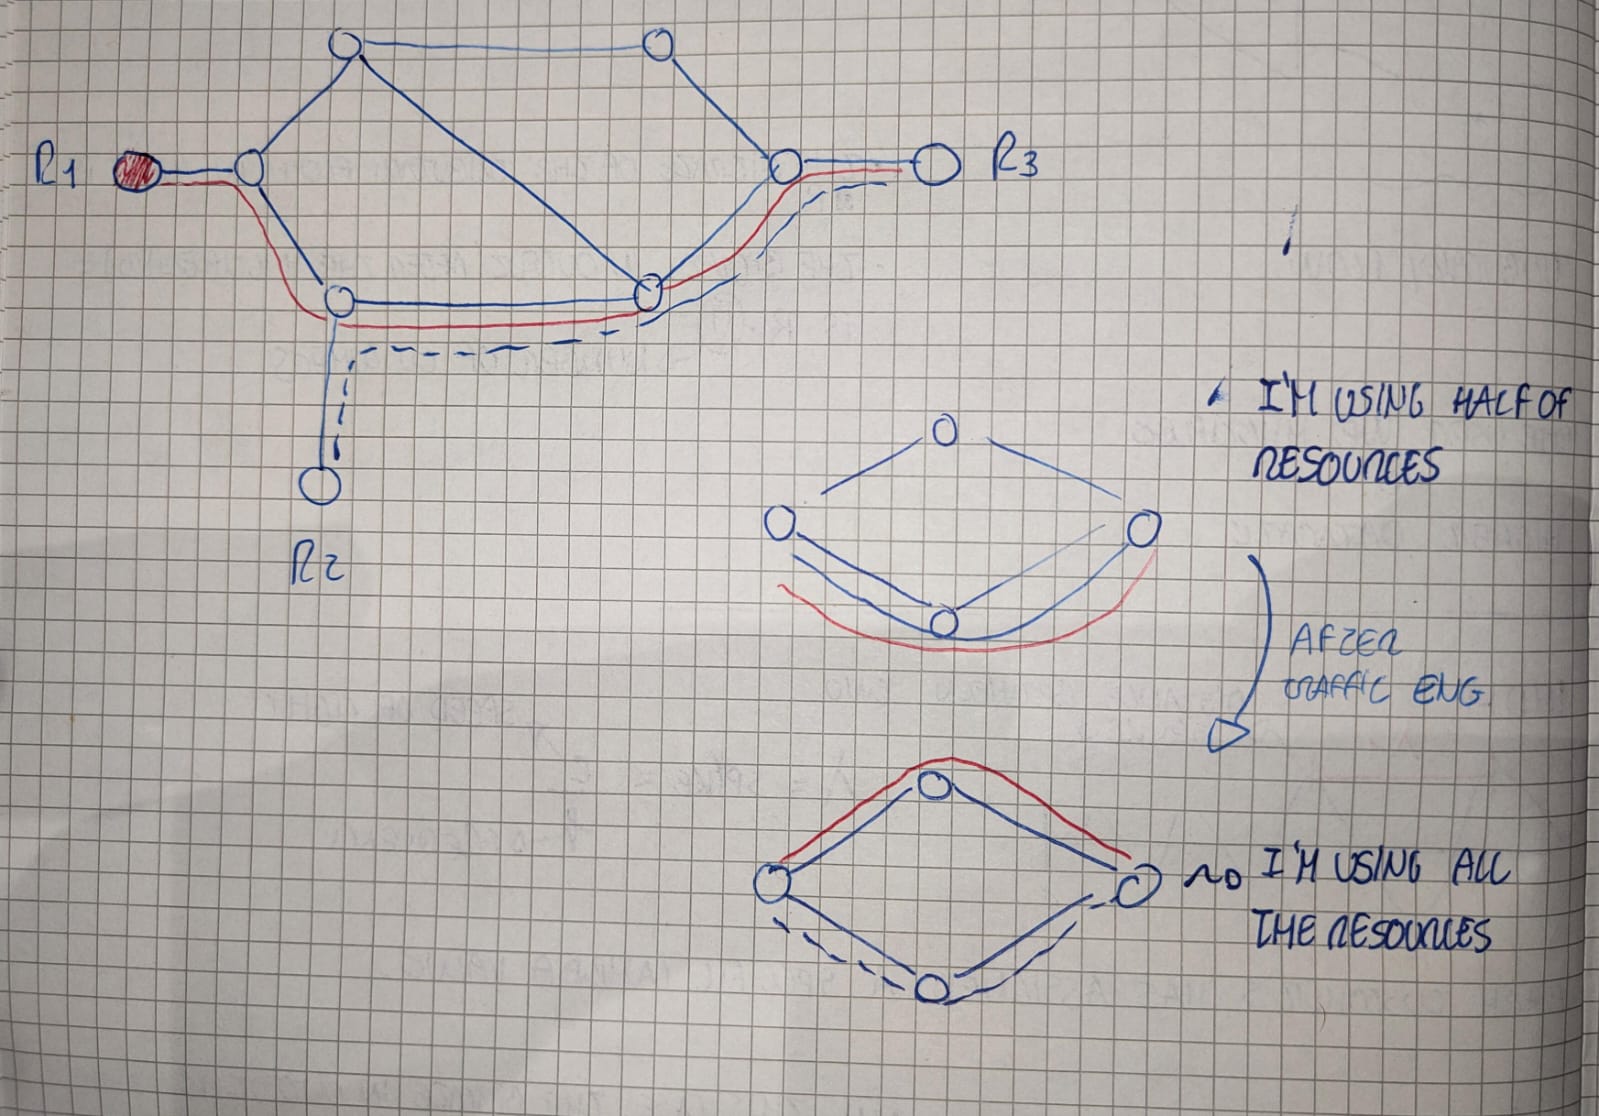 R1
R3
R2
I'M USING HALF OF
RESOURCES
AFTER
TRAFFIC ENG.
I'M USING ALL
THE RESOURCES